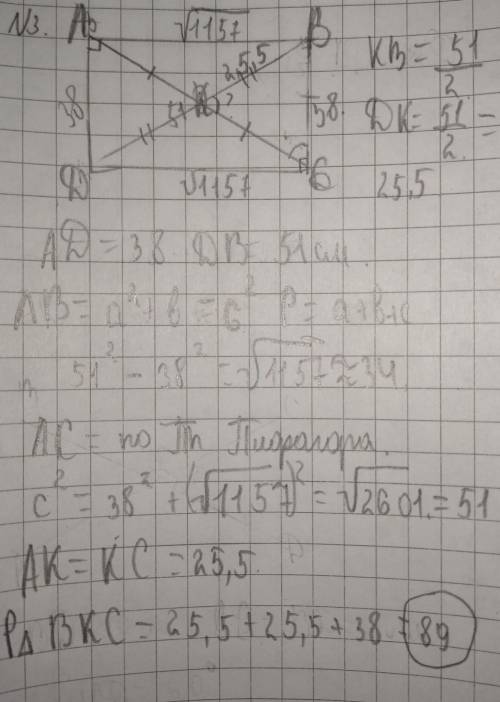 N3. A √1157 B
KB = 51/2
25,5
38 51 K ? 38.
DK = 51/2 =
25,5
D √1157 C
AD = 38 DB = 51 см.
AB = a² + b = c² P = a+b+c
51² - 38² = √1157 ≈ 34
AC = по Th Пифагора.
c² = 38² + (√1157)² = √2601 = 51
AK = KC = 25,5.
P△ BKC = 25,5 + 25,5 + 38 = 89